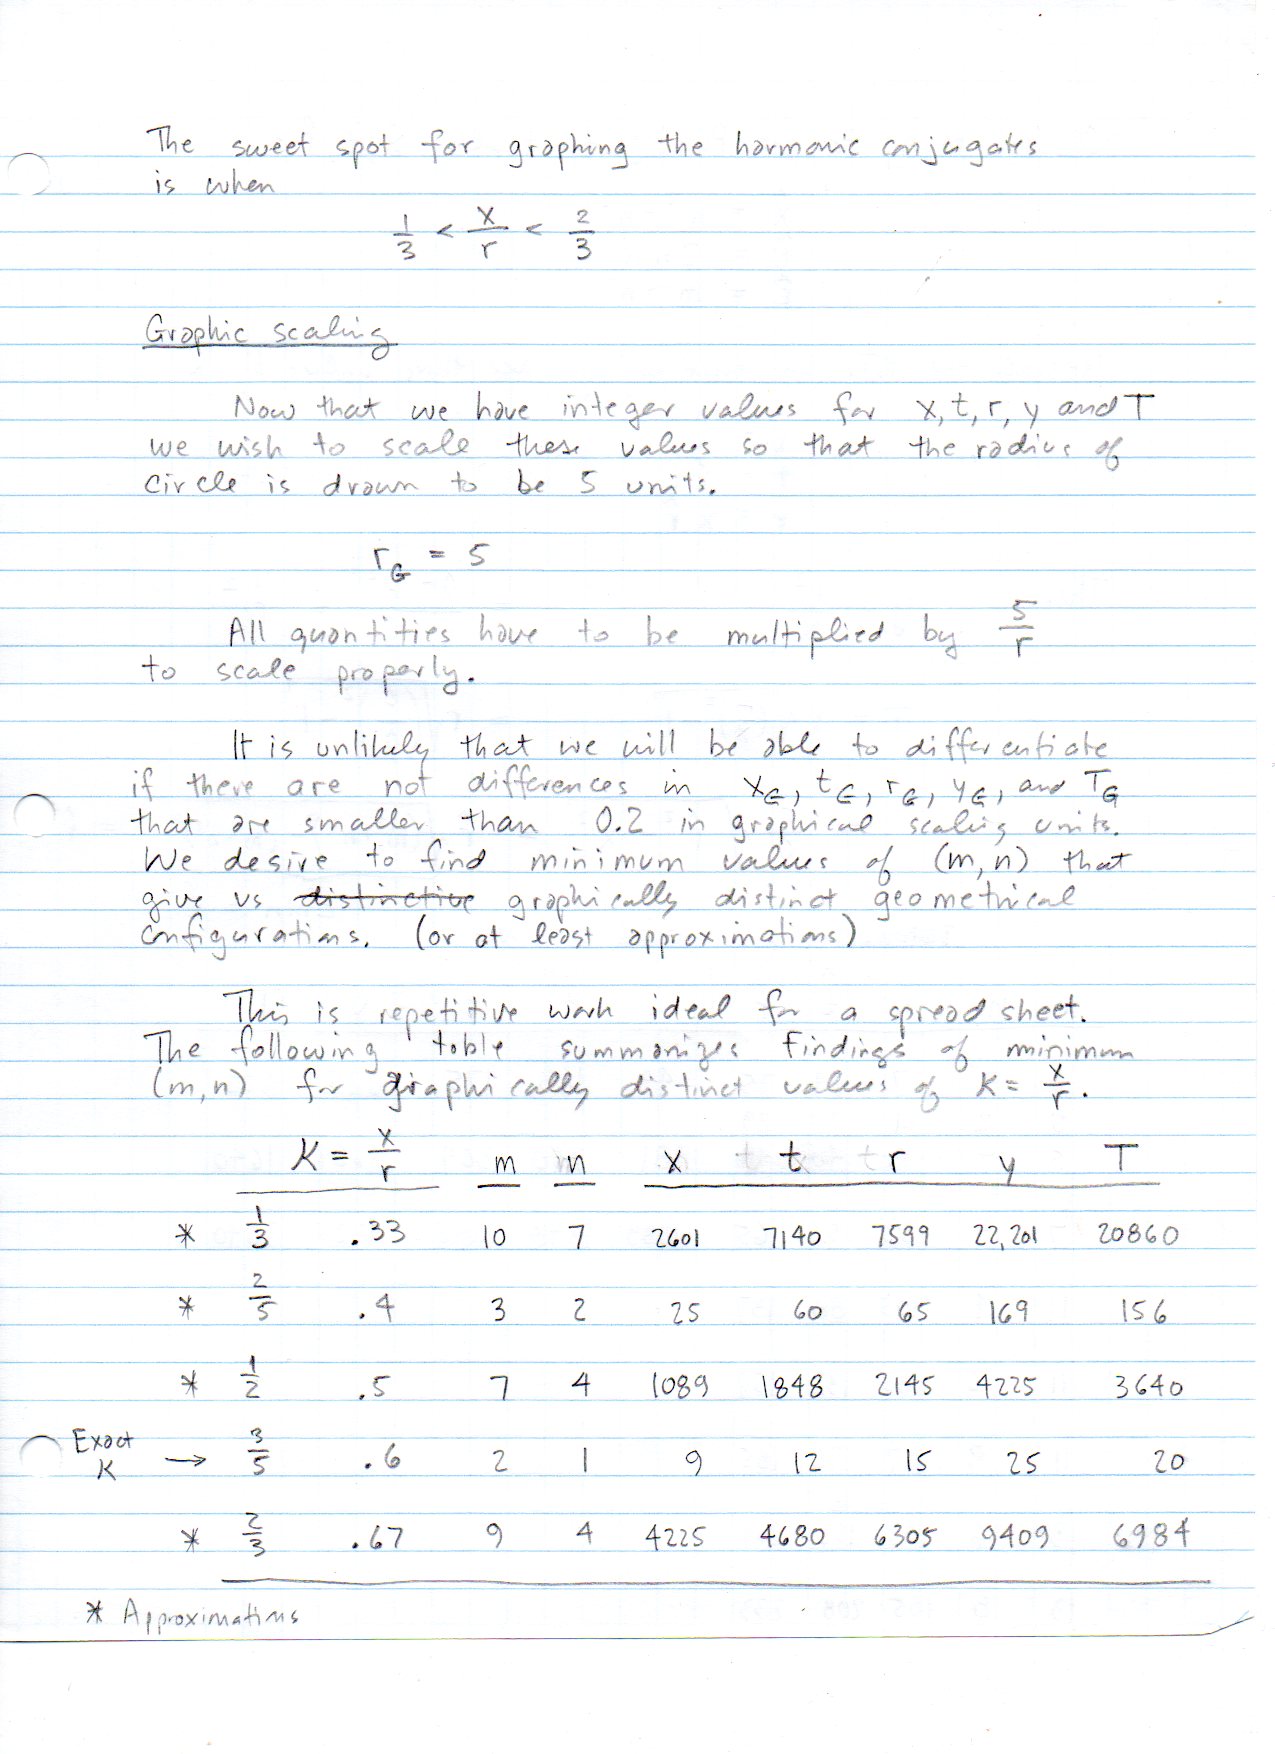 The sweet spot for graphing the harmonic conjugates
is when
1/3 < x/r < 2/3
Graphic scaling
Now that we have integer values for x, t, r, y and T
we wish to scale these values so that the radius of
circle is drawn to be 5 units.
r_G = 5
All quantities have to be multiplied by 5/r
to scale properly.
It is unlikely that we will be able to differentiate
if there are not differences in x_G, t_G, r_G, y_G, and T_G
that are smaller than 0.2 in graphical scaling units.
We desire to find minimum values of (m,n) that
give us distinctive graphically distinct geometrical
configurations. (or at least approximations)
This is repetitive work ideal for a spread sheet.
The following table summarizes findings of minimum
(m,n) for graphically distinct values of K = x/r.
K = x/r m n x t r y T
* 1/3 .33 10 7 2601 7140 7599 22,201 20860
* 2/5 .4 3 2 25 60 65 169 156
* 1/2 .5 7 4 1089 1848 2145 4225 3640
Exact
K → 3/5 .6 2 1 9 12 15 25 20
* 2/3 .67 9 4 4225 4680 6305 9409 6984
* Approximations